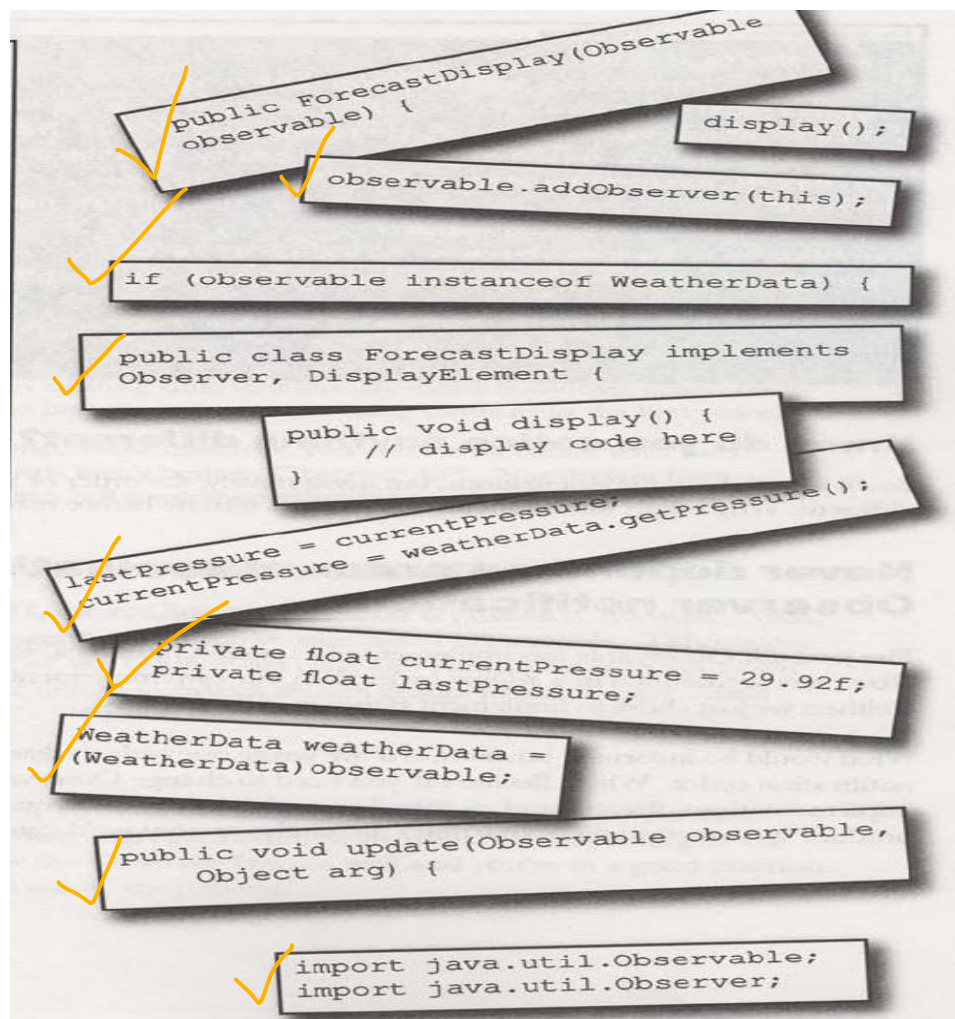 public ForecastDisplay(Observable
observable) {
display();
observable.addObserver(this);
if (observable instanceof WeatherData) {
public class ForecastDisplay implements
Observer, DisplayElement {
public void display() {
// display code here
}
lastPressure = currentPressure;
currentPressure = weatherData.getPressure();
private float currentPressure = 29.92f;
private float lastPressure;
WeatherData weatherData =
(WeatherData)observable;
public void update(Observable observable,
Object arg) {
import java.util.Observable;
import java.util.Observer;